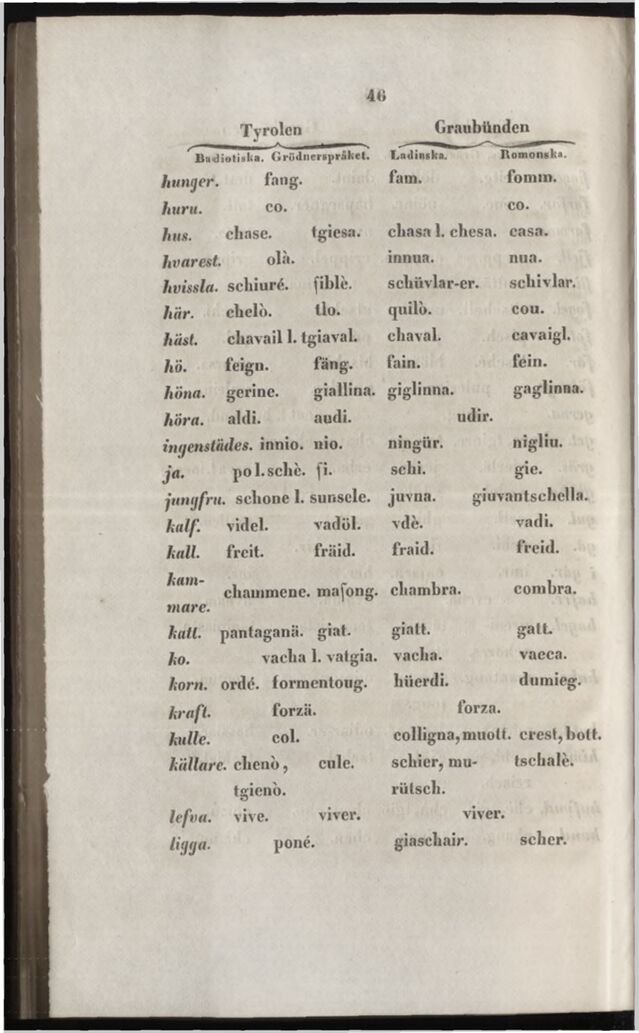 46
Tyrolen Graubünden
Badiotiska. Grödnerspråket. Ladinska. Romonska.
hunger. fang. fam. fomm.
huru. co. co.
hus. chase. tgiesa. chasa l. chesa. casa.
hvarest. olà. innua. nua.
hvissla. schiuré. ſiblè. schüvlar-er. schivlar.
här. chelò. tlo. quilò. cou.
häst. chavail l. tgiaval. chaval. cavaigl.
hö. feign. fäng. fain. fein.
höna. gerine. giallina. giglinna. gaglinna.
höra. aldi. audi. udir.
ingenstädes. innio. nio. ningür. nigliu.
ja. po l. schè. ſi. schi. gie.
jungfru. schone l. sunsele. juvna. giuvantschella.
kalf. videl. vadöl. vdè. vadi.
kall. freit. fräid. fraid. freid.
kam-
mare. chammene. maſong. chambra. combra.
katt. pantaganä. giat. giatt. gatt.
ko. vacha l. vatgia. vacha. vacca.
korn. ordé. formentoug. hüerdi. dumieg.
kraft. forzä. forza.
kulle. col. colligna, muott. crest, bott.
källare. chenò, cule. schier, mu- tschalè.
tgienò. rütsch.
lefva. vive. viver. viver.
ligga. poné. giaschair. scher.